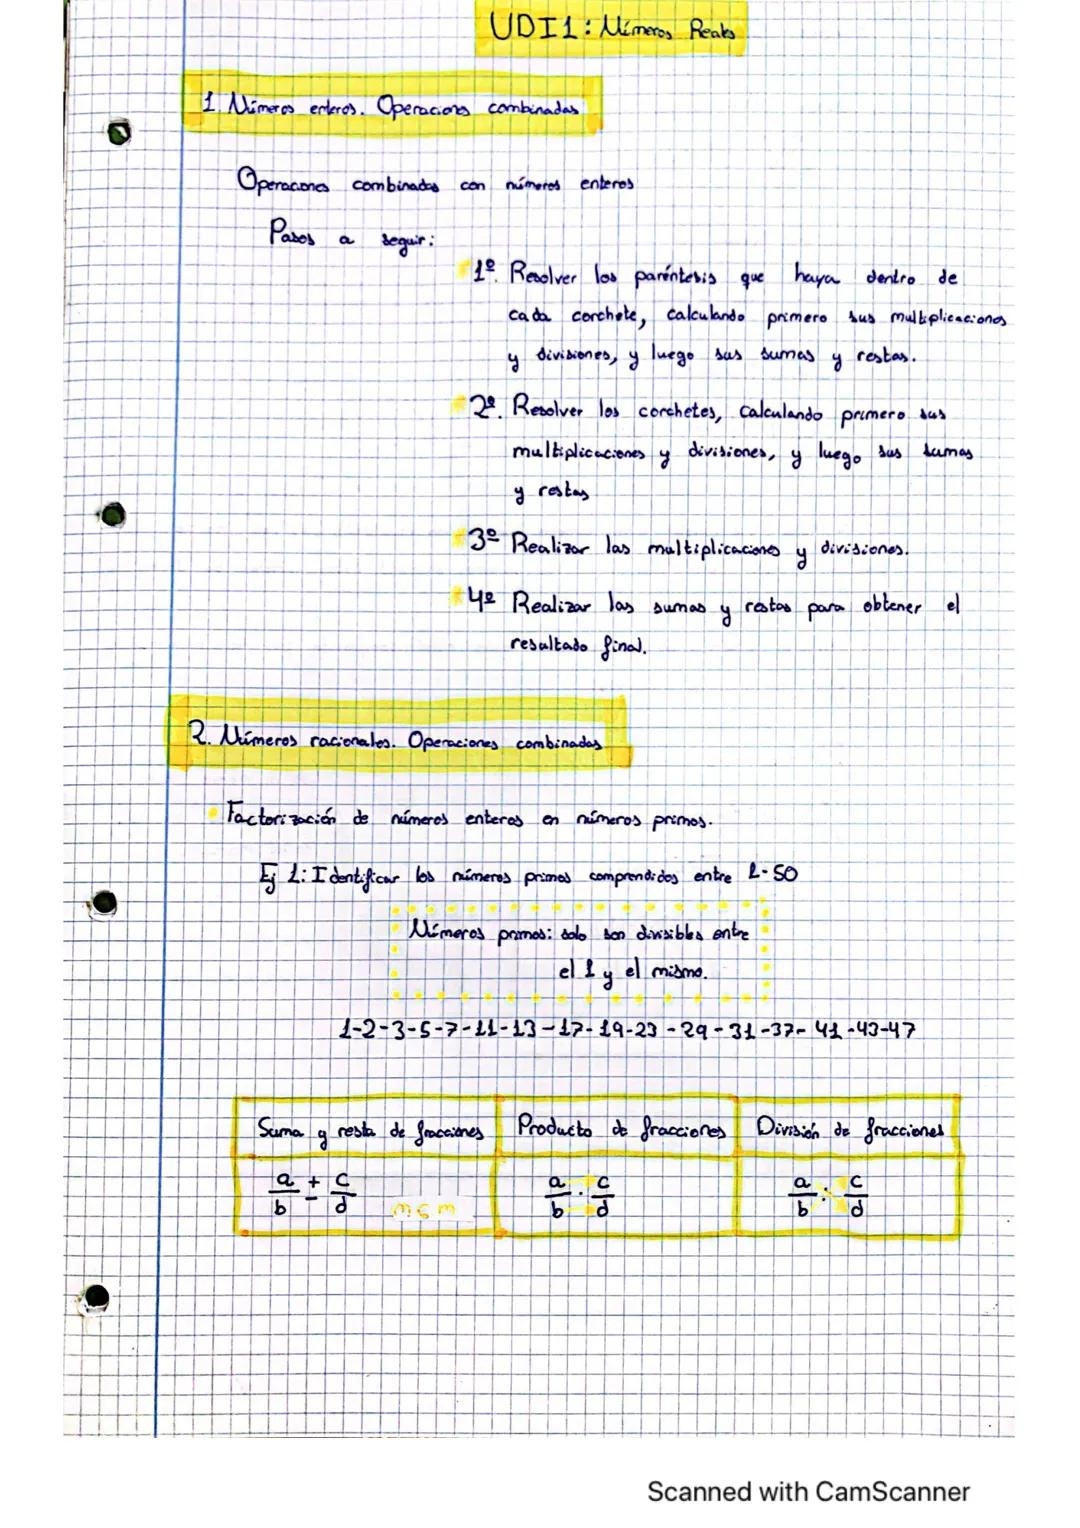 UDI1: Números Reales
1. Números enteros. Operaciones combinadas
Operaciones combinadas con números enteros
Pasos a seguir:
1º. Resolver los paréntesis que haya dentro de
cada corchete, calculando primero sus multiplicaciones
y divisiones, y luego sus sumas y restas.
2º. Resolver los corchetes, calculando primero sus
multiplicaciones y divisiones, y luego sus sumas
y restas
3º Realizar las multiplicaciones y divisiones.
4º Realizar las sumas y restas para obtener el
resultado final.
2. Números racionales. Operaciones combinadas
Factorización de números enteros en números primos.
Ej 1: Identificar los números primos comprendidos entre 1-50
Números primos: solo son divisibles entre
el 1 y el mismo.
1-2-3-5-7-11-13-17-19-23-29-31-37-41-43-47
Suma y resta de fracciones Producto de fracciones División de fracciones
a/b ± c/d mcm a/b · c/d a/b : c/d
Scanned with CamScanner